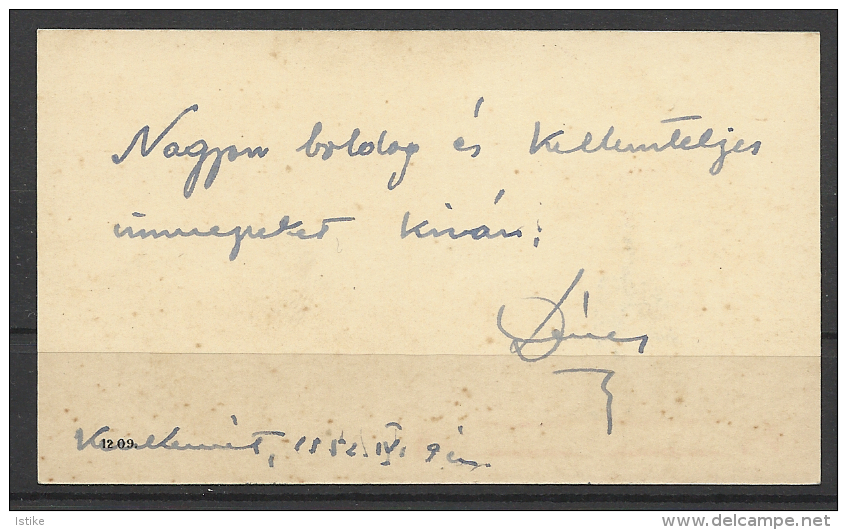 Nagyon boldog és kellemteljes
ünnepeket kíván:
Dénes
Kecskemét, 1952. IV. 9 én.
1209.
Istike
delcampe.net